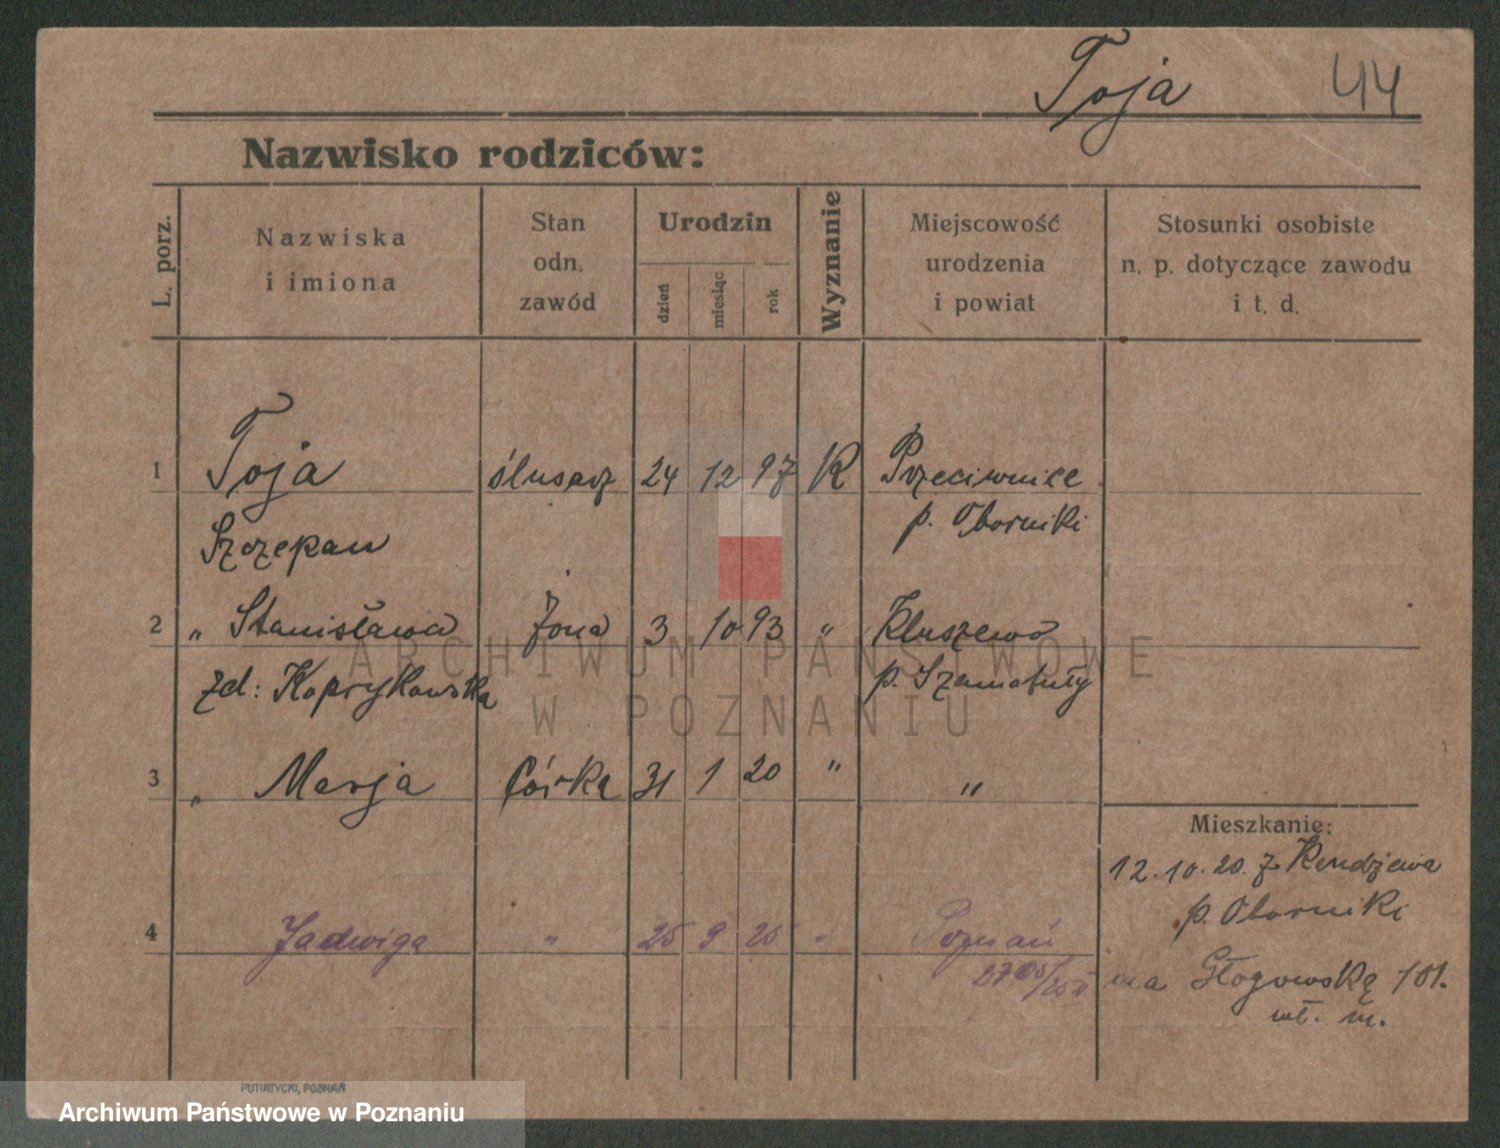 Toja 44
Nazwisko rodziców:
L. porz.
Nazwiska
i imiona
Stan
odn.
zawód
Urodzin
dzień
miesiąc
rok
Wyznanie
Miejscowość
urodzenia
i powiat
Stosunki osobiste
n. p. dotyczące zawodu
i t. d.
1 Toja ślusarz 24 12 97 K Przeciwnice
Szczepan p. Oborniki
2 „ Stanisława żona 3 10 93 „ Kluszewo
zd: Koprykowska p. Szamotuły
3 „ Marja Córka 31 1 20 „ „
Mieszkanie:
12.10.20. z Kendzewa
p. Oborniki
4 Jadwiga „ 25 9 25 „ Poznań
na Głogowską 101.
wł. m.
PUTIATYCKI, POZNAŃ
ARCHIWUM PAŃSTWOWE
W POZNANIU
Archiwum Państwowe w Poznaniu